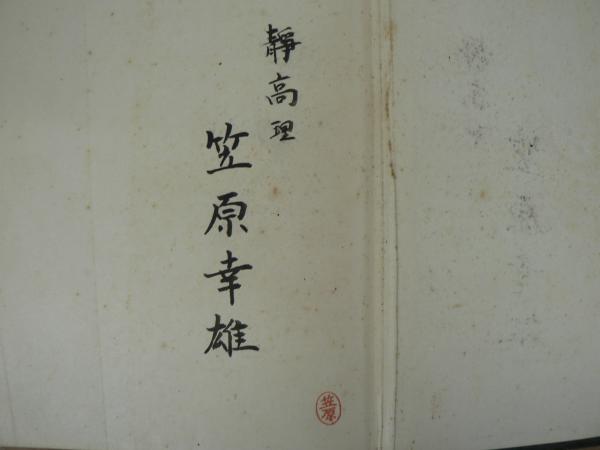 靜高理
笠原幸雄
笠原